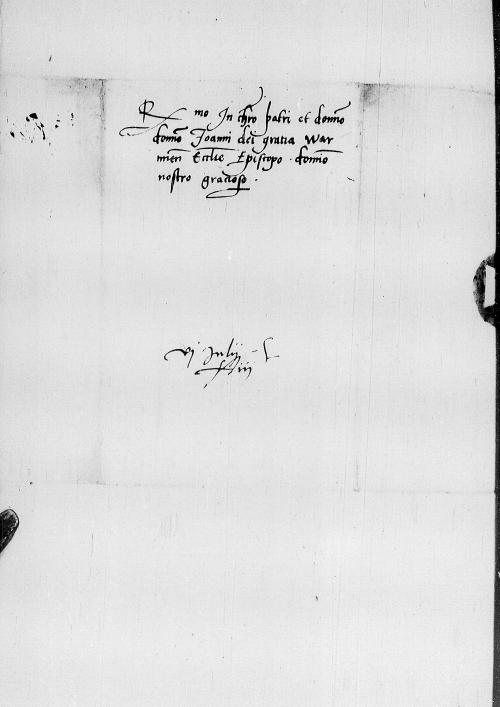 Rmo In chro patri et domno
domno Joanni dei gratia War
mien Ecclie Episcopo. domno
nostro gracioso.
vj Julij